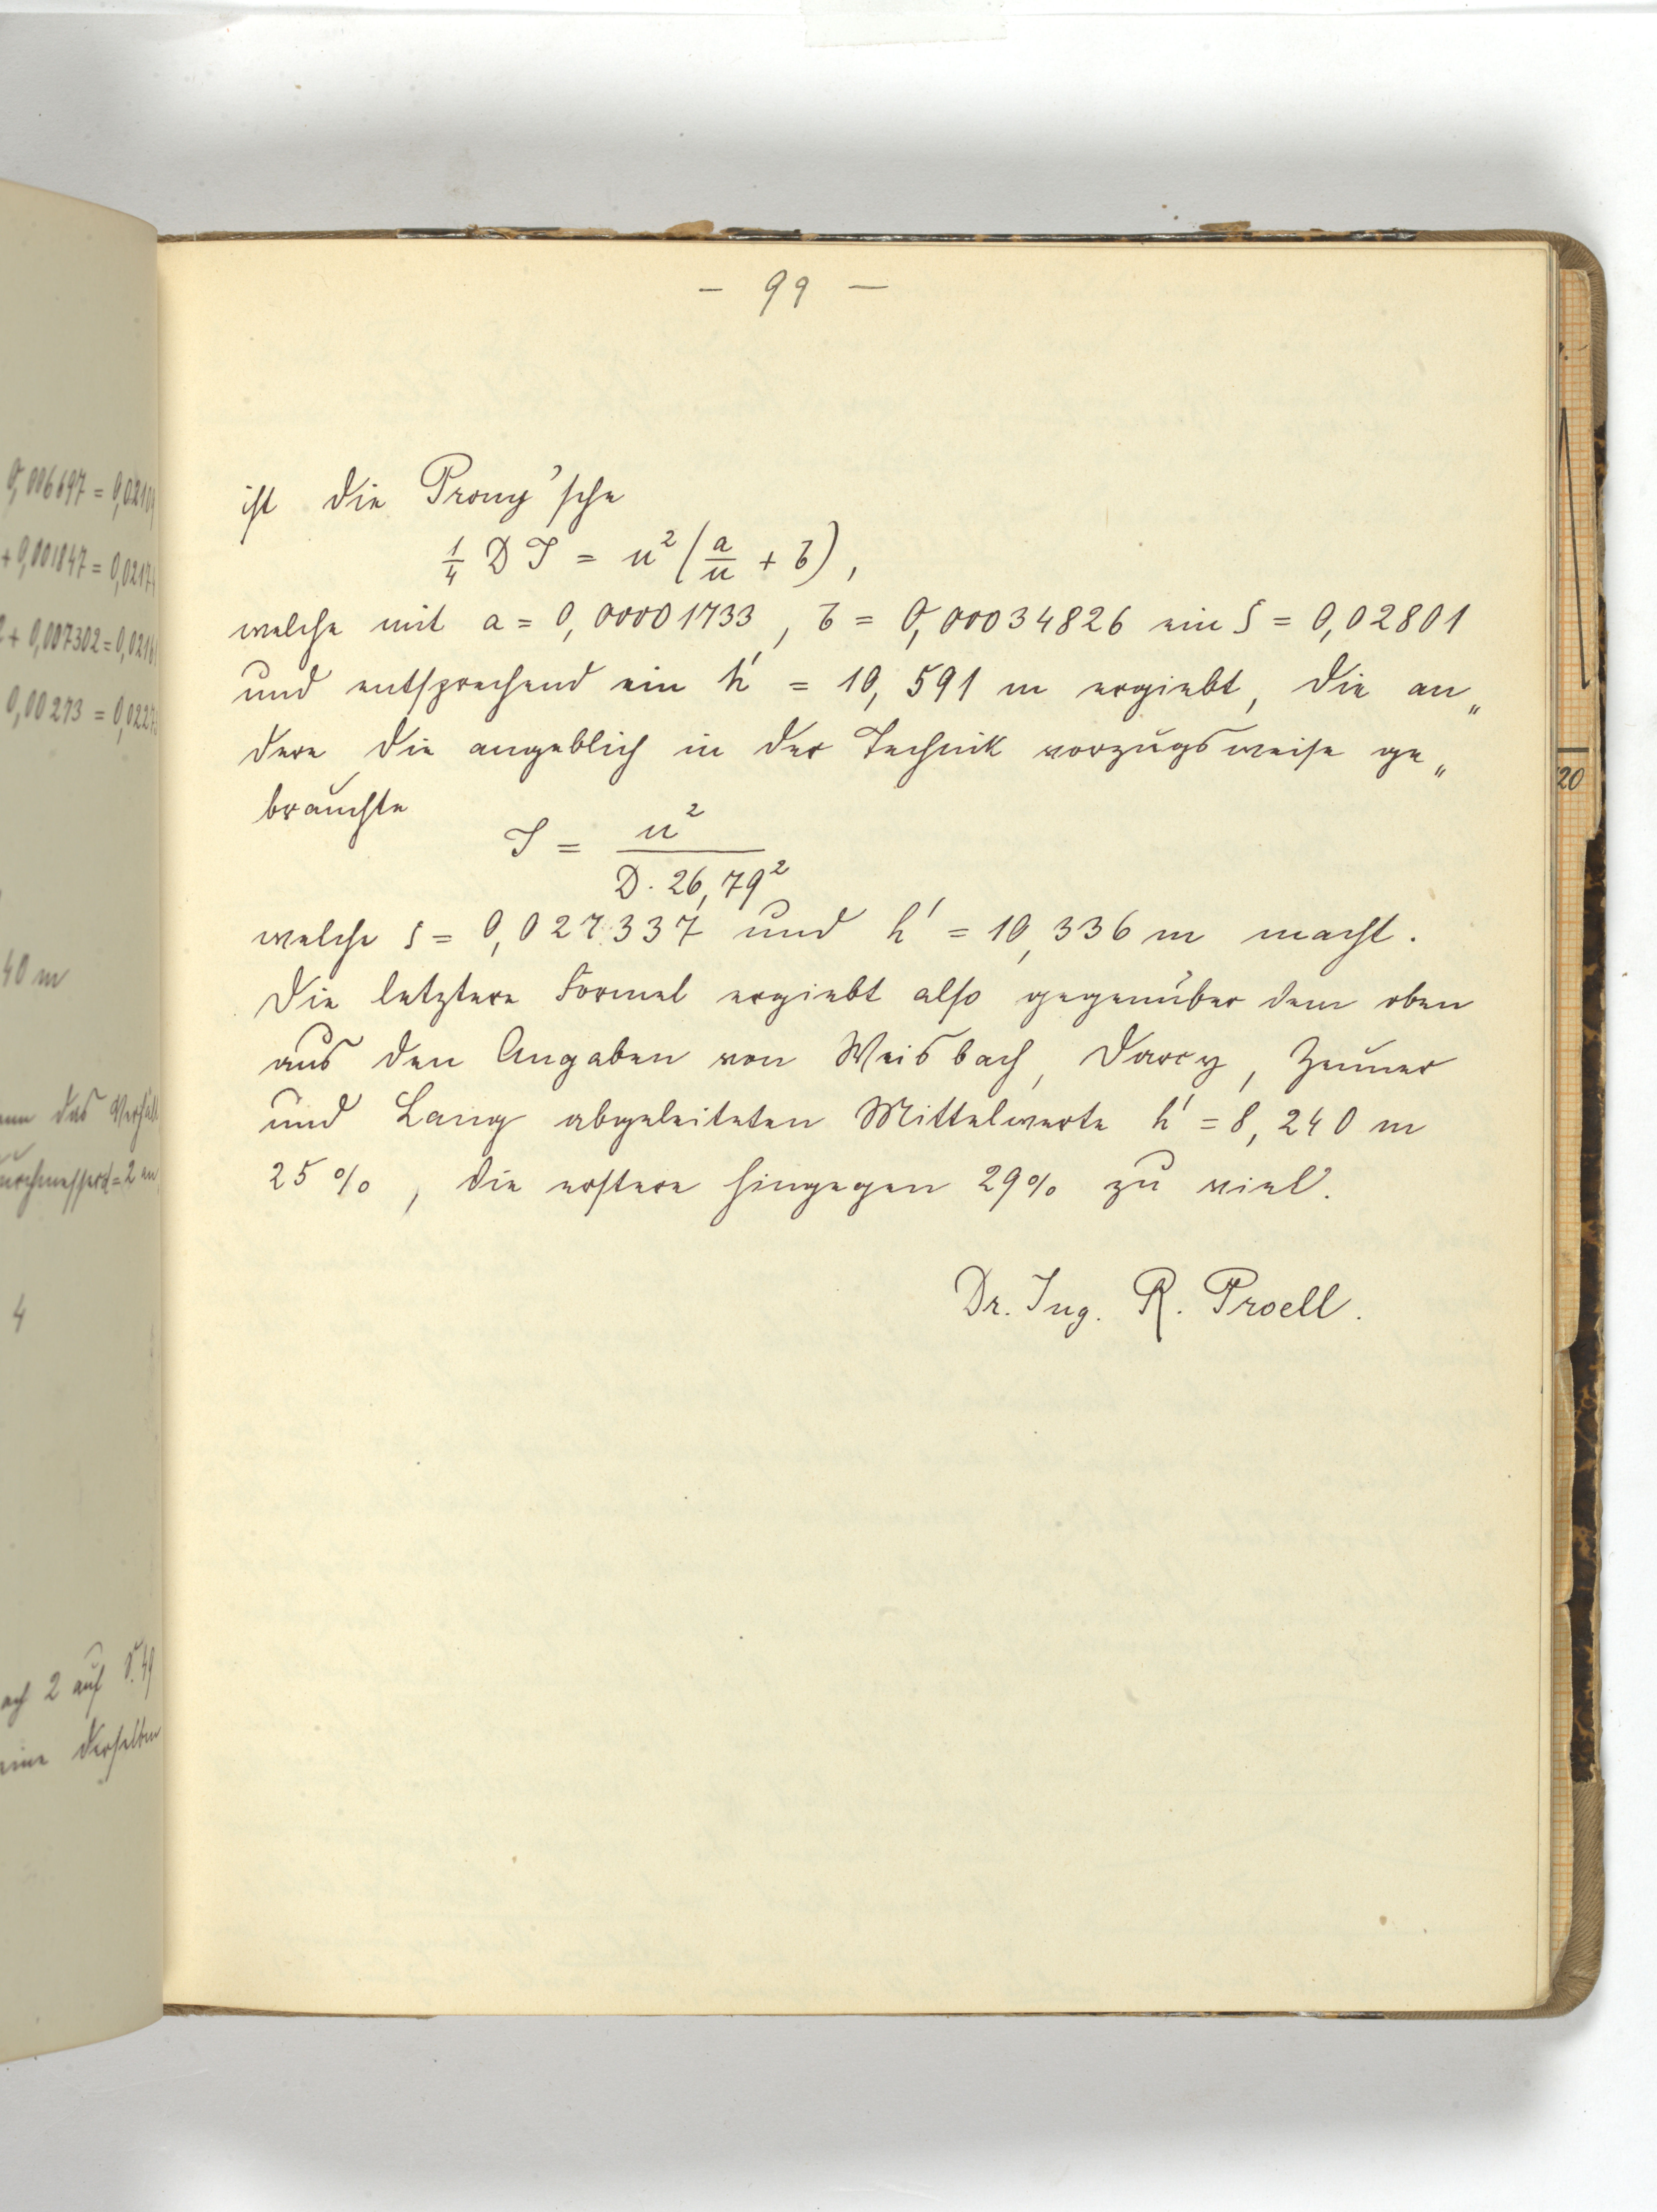 0,006697 = 0,0210
+ 0,001847 = 0,0217
+ 0,007302 = 0,0216
0,00273 = 0,0227
40 m
das Verhält
= 2 an
4
ach 2 auf S. 49
eine derselben
– 99 –
ist die Prony'sche
1/4 D J = u² (a/u + b),
welche mit a = 0,00001733, b = 0,00034826 ein ς = 0,02801
und entsprechend ein h' = 10,591 m ergiebt, die an„
dere die angeblich in der Technik vorzugsweise ge„
brauchte
J = u² / D. 26,79²
welche ς = 0,027337 und h' = 10,336 m macht.
Die letztere Formel ergiebt also gegenüber dem oben
aus den Angaben von Weisbach, Darcy, Zeuner
und Lang abgeleiteten Mittelwerte h' = 8,240 m
25 %, die erstere hingegen 29% zu viel.
Dr. Ing. R. Proell.
20